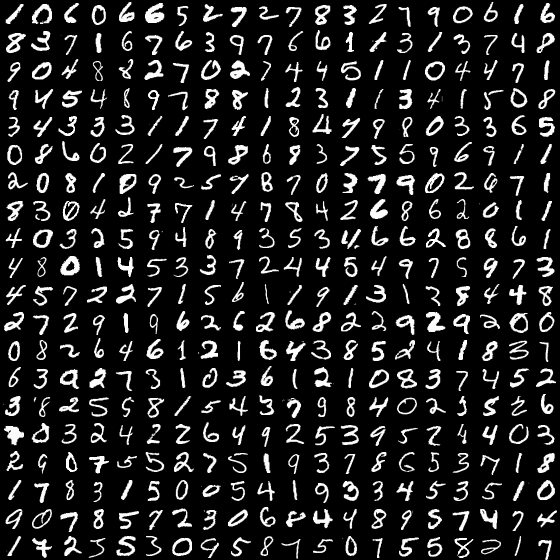 1 0 6 0 6 6 5 2 7 2 7 8 3 2 7 9 0 6 1 6
8 3 7 1 6 7 6 3 9 7 6 6 1 1 3 1 3 7 4 8
9 0 4 8 8 2 7 0 2 7 4 4 5 1 1 0 4 4 7 1
9 4 5 4 8 9 7 8 8 1 2 3 1 1 3 4 1 5 0 8
3 4 3 3 3 1 1 7 4 1 8 4 9 9 8 0 3 3 6 5
0 8 6 0 2 1 7 9 8 6 8 3 7 5 5 9 6 9 1 1
2 0 8 1 0 9 2 5 9 8 7 0 3 7 9 0 2 6 7 1
8 3 0 4 2 7 7 1 4 7 8 4 2 6 8 6 2 0 1 1
4 0 3 2 5 9 4 8 9 3 5 3 4 6 6 2 8 8 6 1
4 8 0 1 4 5 3 3 7 2 4 4 5 4 9 7 5 9 7 3
4 5 7 2 2 7 1 5 6 1 1 9 1 3 1 2 8 4 4 8
2 7 2 9 1 9 6 2 6 2 6 8 2 2 9 2 9 2 0 0
0 8 2 6 4 6 1 2 1 6 4 3 8 5 2 4 1 8 3 7
6 3 9 2 7 3 1 0 3 6 1 2 1 0 8 3 7 4 5 2
3 8 2 5 5 8 1 5 4 3 7 9 8 4 0 2 3 5 2 6
7 0 3 2 4 2 2 6 4 9 2 5 3 9 5 2 4 4 0 3
2 9 0 7 5 5 2 7 5 1 9 3 7 8 6 5 3 7 1 8
1 7 8 3 1 5 0 0 5 4 1 9 3 3 4 5 3 5 1 0
9 0 7 8 5 7 2 3 0 6 8 4 4 8 9 5 7 4 7 4
1 7 2 5 5 3 0 9 5 8 7 5 0 7 5 5 8 2 1 7